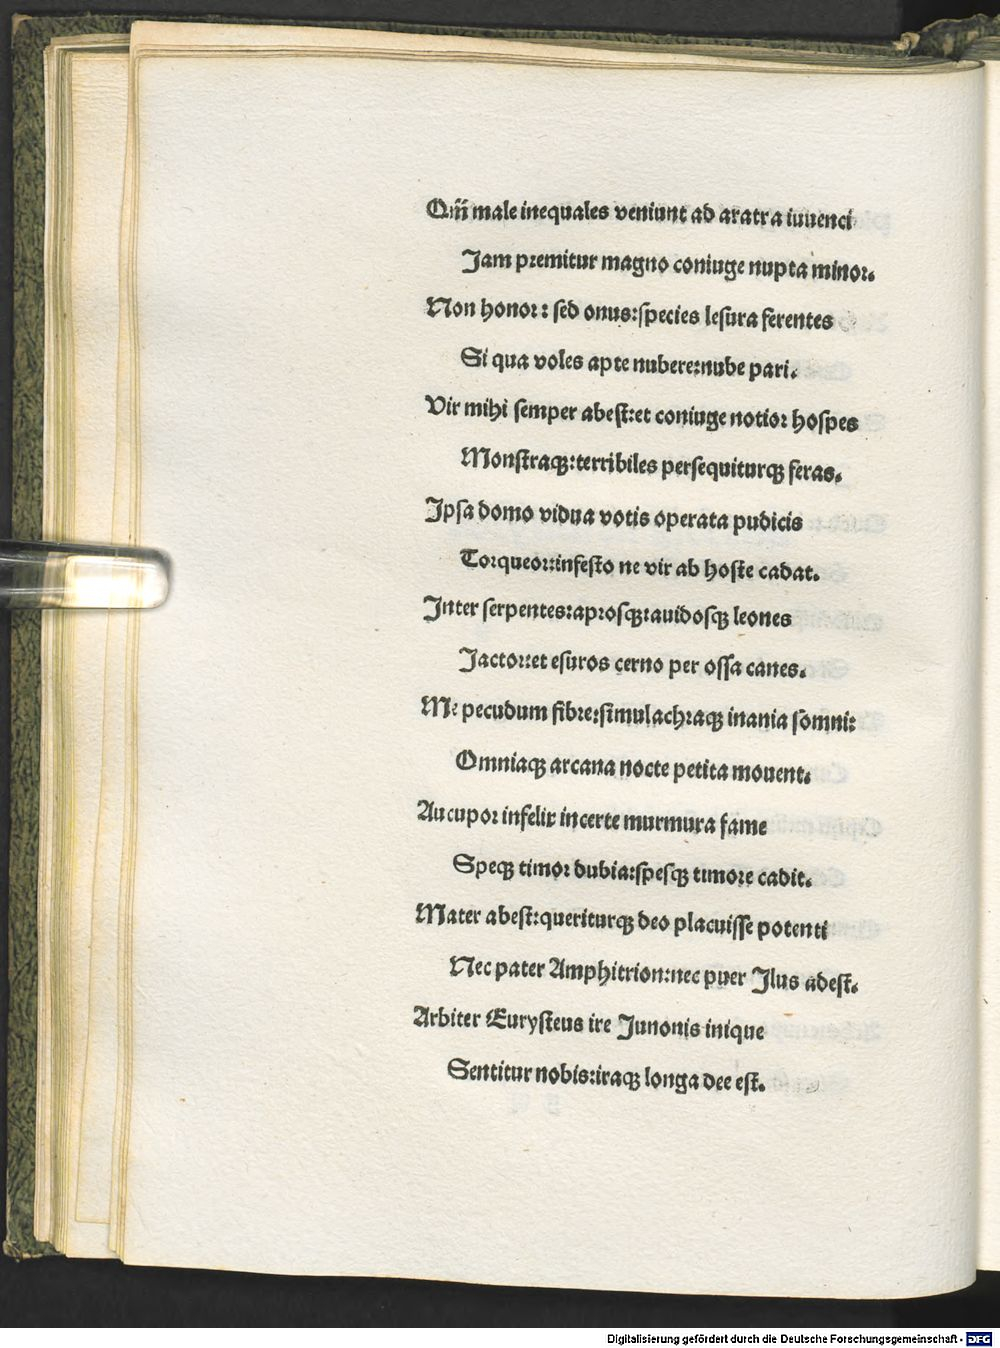 Qm̄ male inequales veniunt ad aratra iuuenci
Jam premitur magno coniuge nupta minor.
Non honor: sed onus: species lesura ferentes
Si qua voles apte nubere: nube pari.
Vir mihi semper abest: et coniuge notior hospes
Monstraqꝫ: terribiles persequiturqꝫ feras.
Ipsa domo vidua votis operata pudicis
Torqueor: infesto ne vir ab hoste cadat.
Inter serpentes: aprosqꝫ: auidosqꝫ leones
Jactor: et esuros cerno per ossa canes.
Me pecudum fibre: simulachraqꝫ inania somni:
Omniaqꝫ arcana nocte petita mouent.
Aucupor infelix incerte murmura fame
Speqꝫ timor dubia: spesqꝫ timore cadit.
Mater abest: queriturqꝫ deo placuisse potenti
Nec pater Amphitrion: nec puer Ilus adest.
Arbiter Eurysteus ire Junonis inique
Sentitur nobis: iraqꝫ longa dee est.
Digitalisierung gefördert durch die Deutsche Forschungsgemeinschaft - DFG